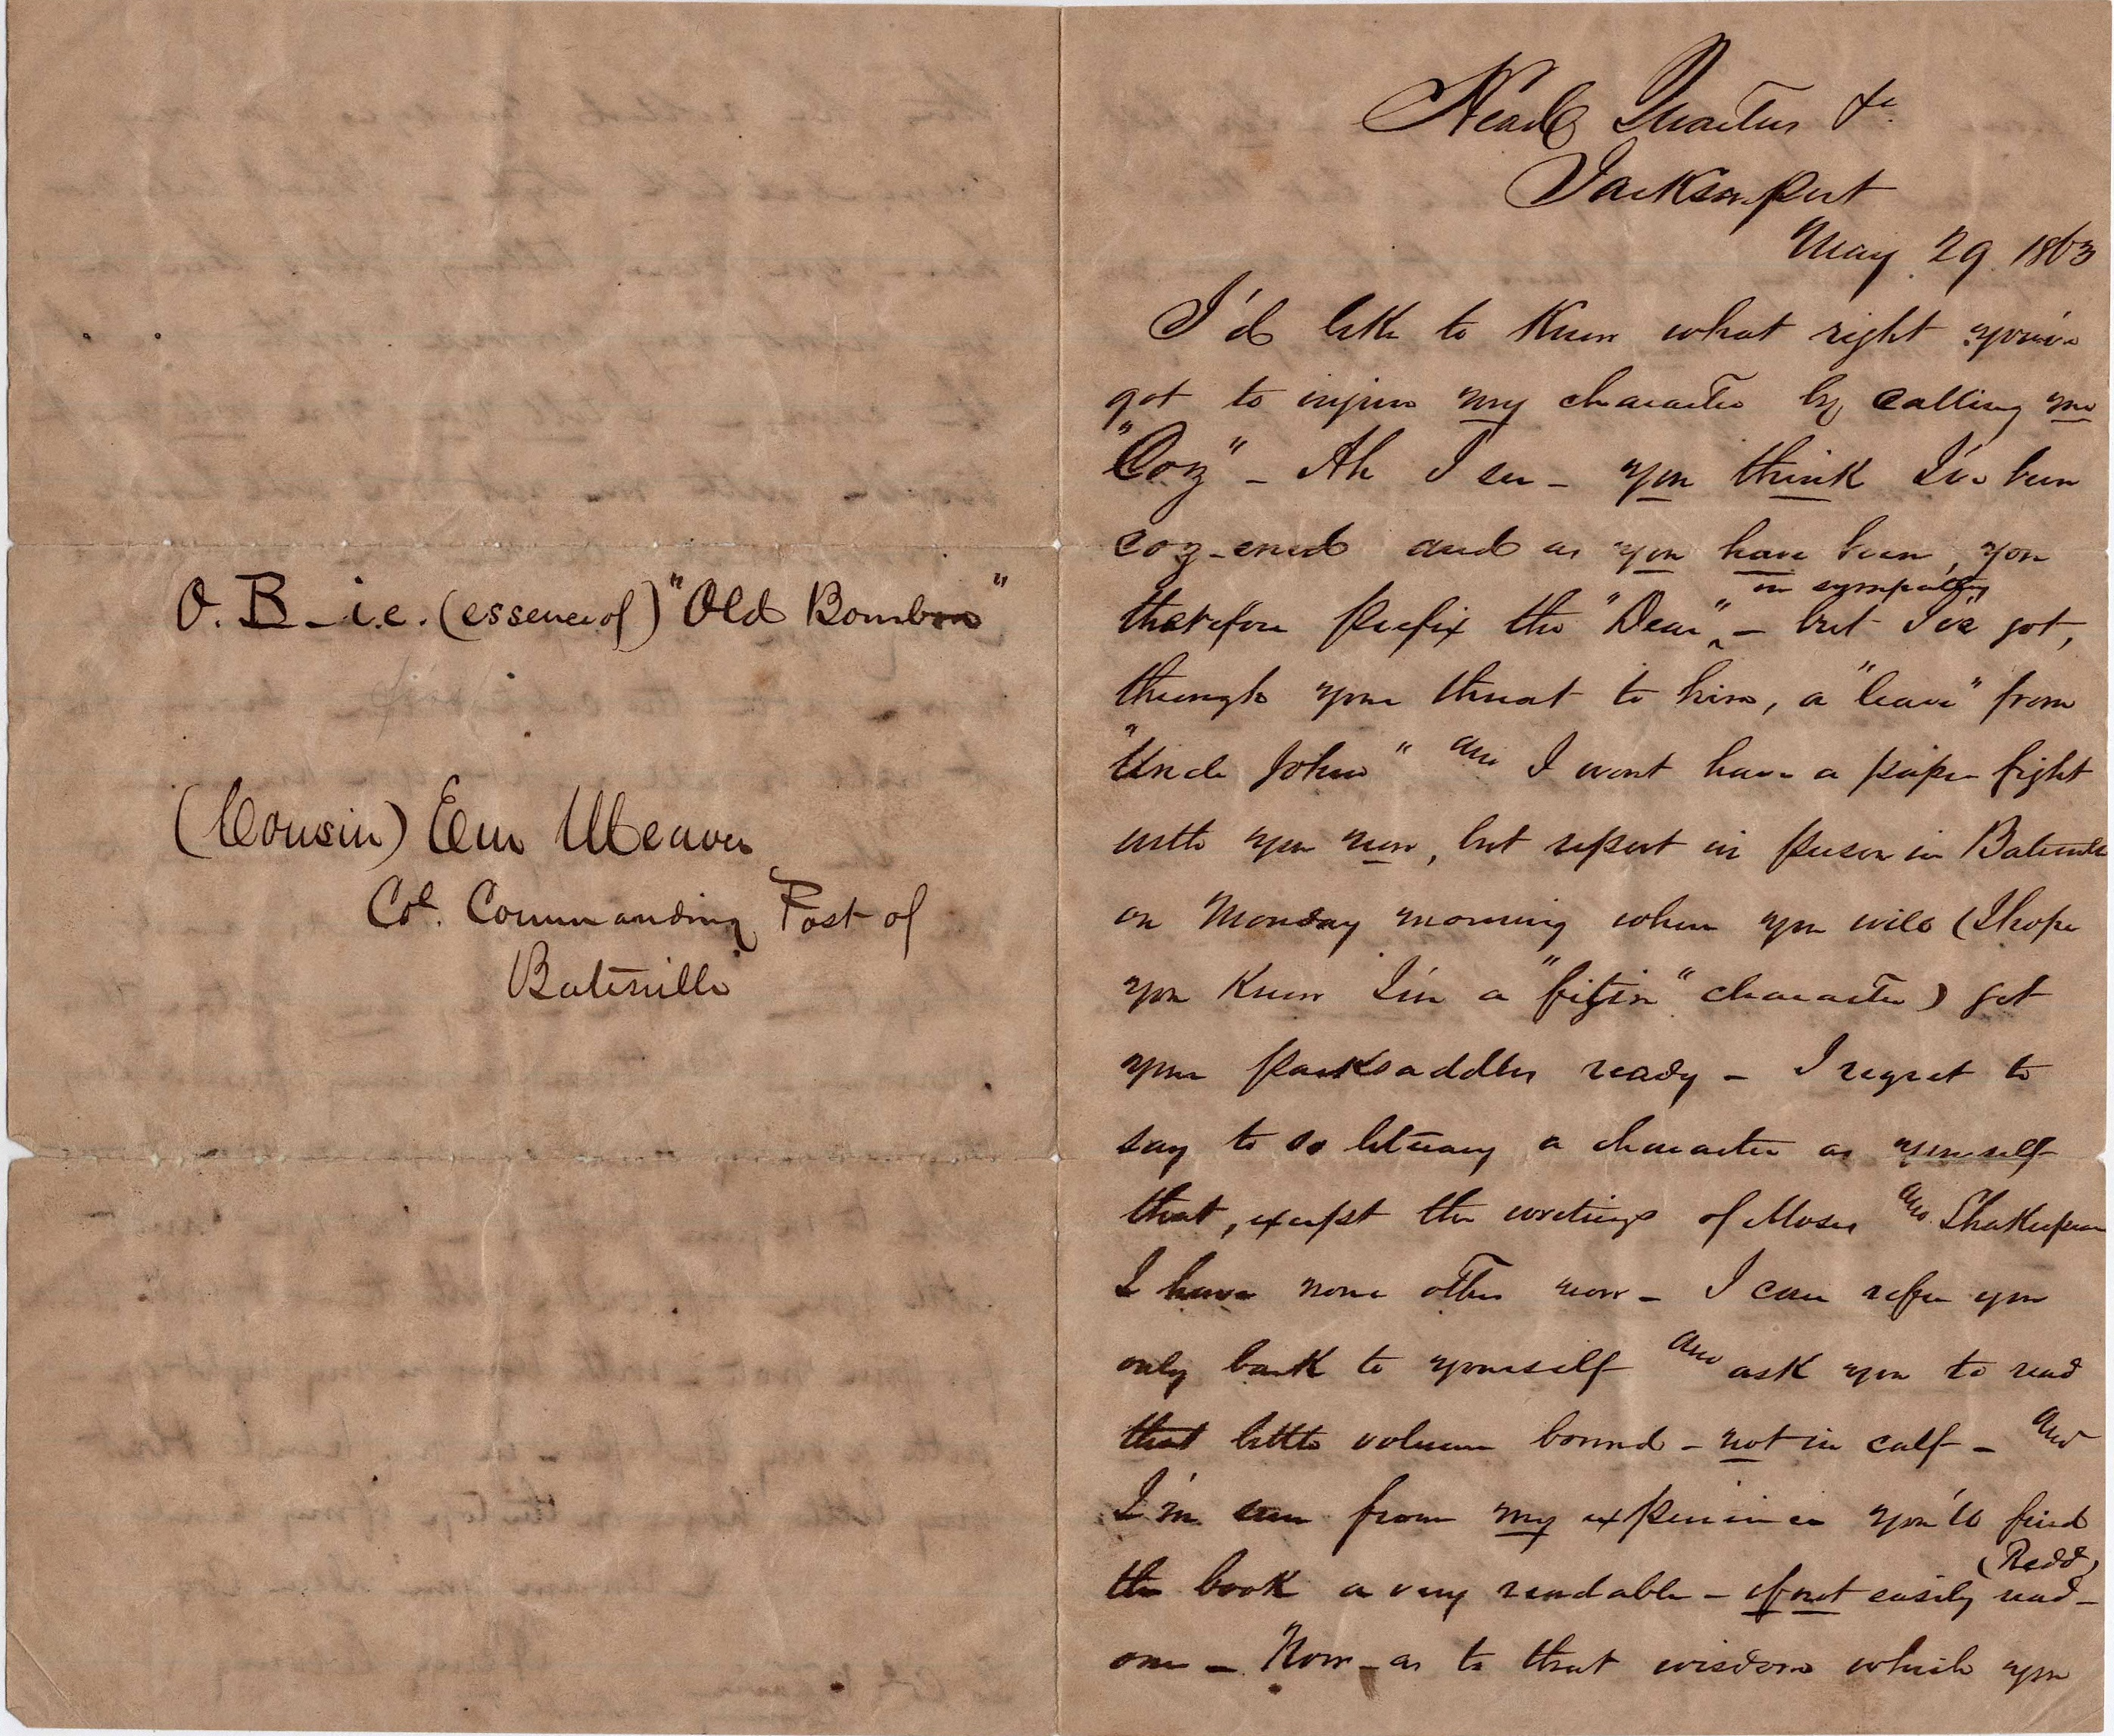 O. B_ i.e. (essence of) "Old Bourbon"
(Cousin) Em Weaver
Col. Commanding Post of
Batesville
Head Quarters &c.
Jacksonport
May 29. 1863
I'd like to know what right you've
got to injure my character by calling me
"Coz" - Ah I see - you think I've been
coz-ened and as you have been, you
therefore prefix the "Dear" in sympathy - but I've got,
through your threat to him, a "leave" from
"Uncle John" and I wont have a paper fight
with you now, but report in person in Batesville
on Monday morning when you will (I hope
you know I'm a "fitin" character) get
your packsaddles ready - I regret to
say to so literary a character as yourself
that, except the writings of Moses and Shakespeare
I have none other now - I can refer you
only back to yourself and ask you to read
that little volume bound - not in calf - and
I'm sure from my experience you'll find
the book a very readable - if not easily read (Redd) -
one - Now - as to that wisdom which you